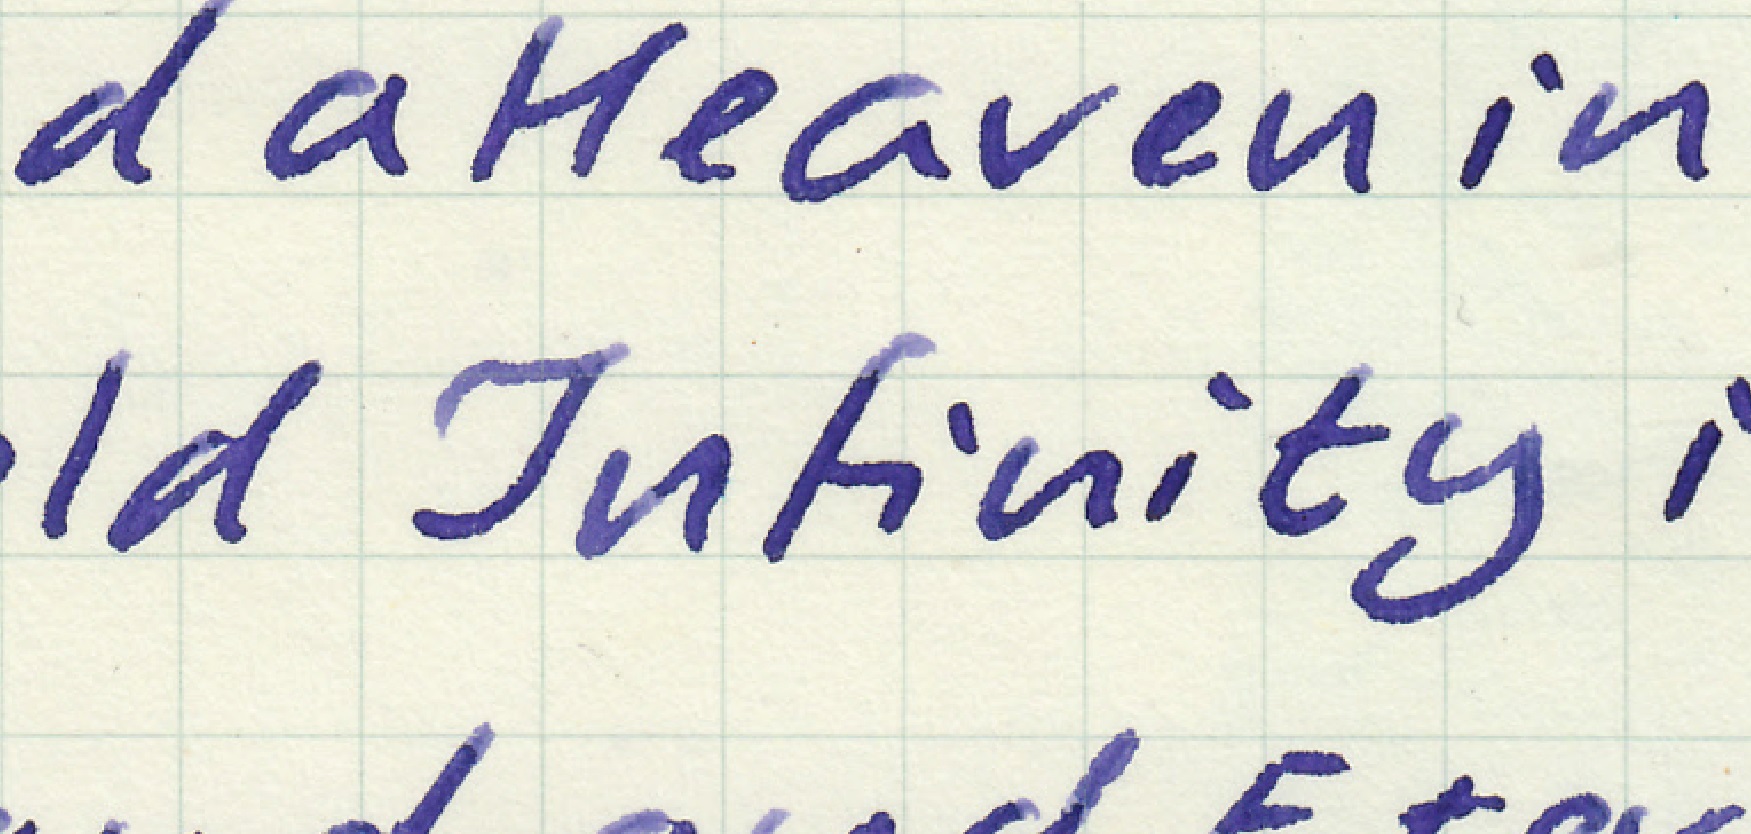 d a Heaven in
ld Infinity i
and Eter